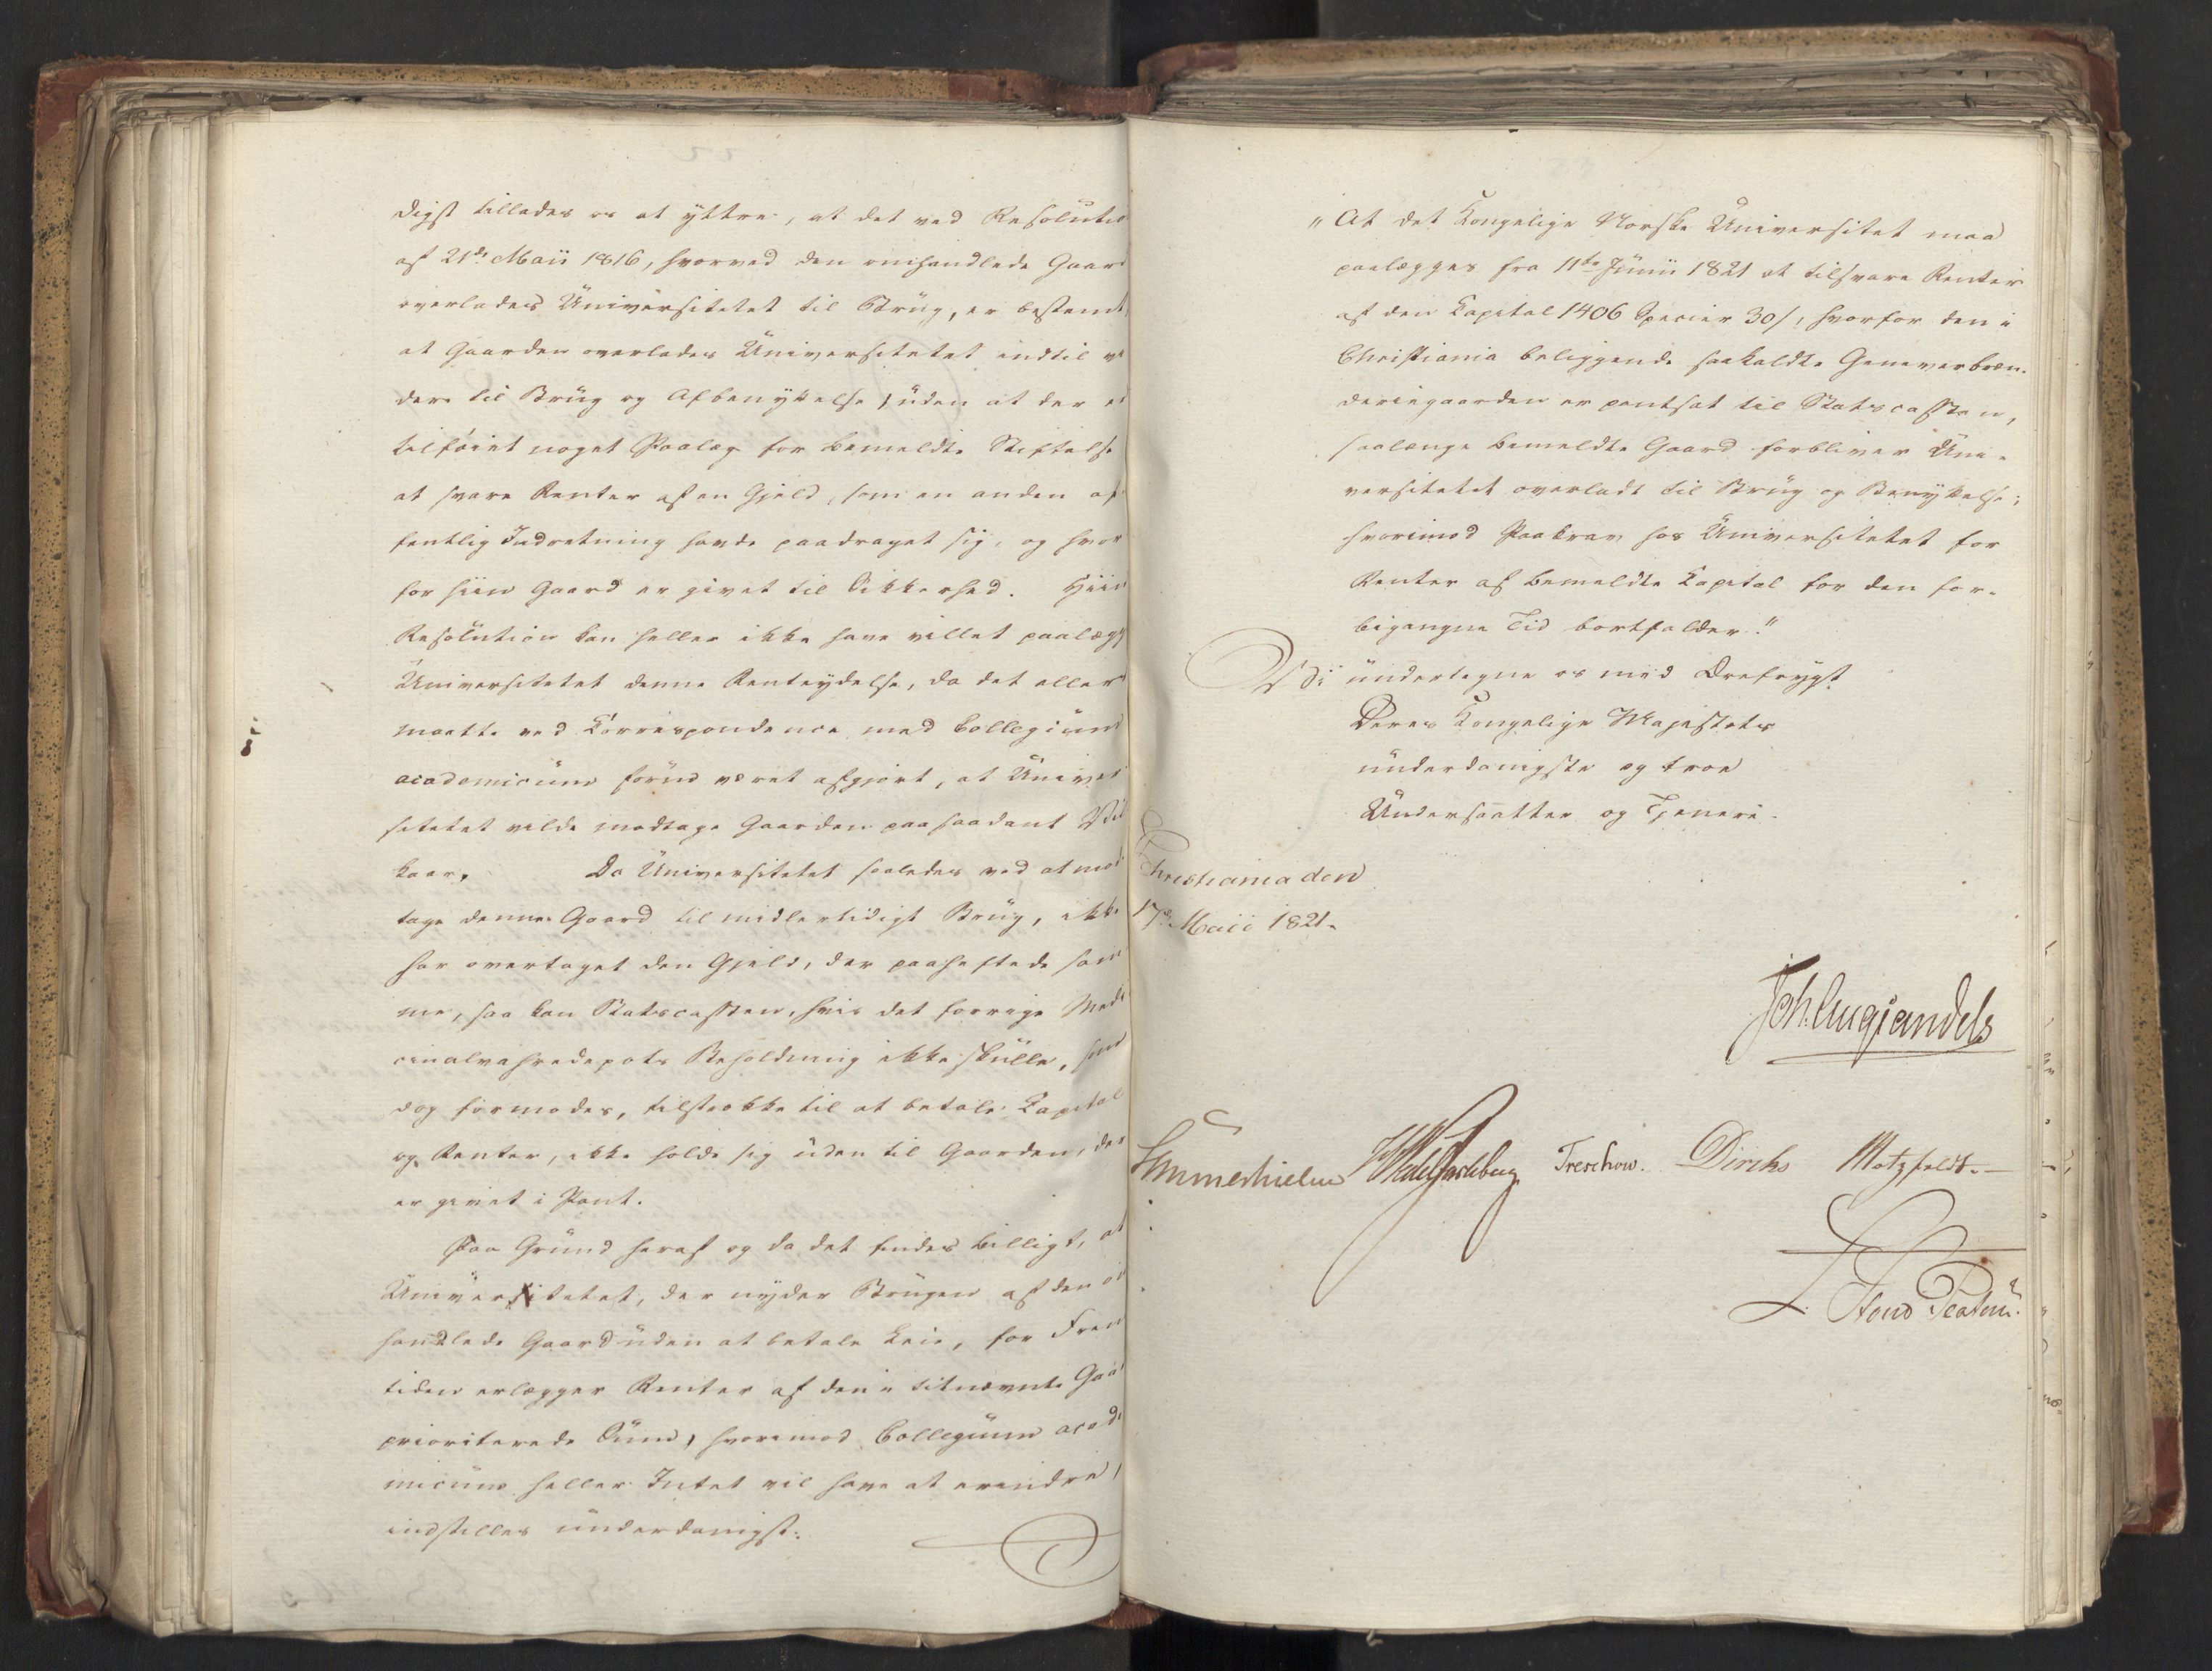 digst tillades os at yttre, at det ved Resolutio
af 21de Maii 1816, hvorved den omhandlede Gaard
overlades Universitetet til Brug, er bestemt
at Gaarden overlades Universitetet indtil vi
dere til Brug og Afbenyttelse, uden at der er
tilføiet noget Paalæg for bemeldte Stiftelse
at svare Renter af en Gjeld, som en anden of
fentlig Indretning havde paadraget sig, og hvor
for hiin Gaard er givet til Sikkerhed. Hiin
Resolution kan heller ikke have villet paalægg
Universitetet denne Renteydelse, da det ellers
maatte ved Correspondence med Collegium
academicum forud været afgjort, at Univer
sitetet vilde modtage Gaarden paa saadant Vil
kaar. Da Universitetet saaledes ved at mod
tage denne Gaard til midlertidigt Brug, ikke
har overtaget den Gjeld, der paaheftede sam
me, saa kan Statscassen, hvis det forrige Medi
cinalvahredepots Beholdning ikke skulle, som
dog formodes, tilstrække til at betale Capital
og Renter, ikke holde sig uden til Gaarden, der
er givet i Pant.
Paa Grund heraf og da det findes billigt, at
Universitetet, der nyder Brugen af den om
handlede Gaard uden at betale Leie, for Frem
tiden erlægger Renter af den i bitnævnte Gaar
prioriterede Sum, hvorimod Collegium acade
micum heller Intet vil have at erindre,
indstilles underdanigst:
"At det Kongelige Norske Universitet maa
paalægges fra 11te Junii 1821 at tilsvare Renter
af den Capital 1406 Specier 30/, hvorfor den i
Christiania beliggende saakaldte Geneverbræn-
deriegaarden er pantsat til Statscassen,
saalænge bemeldte Gaard forbliver Uni-
versitetet overladt til Brug og Benyttelse;
hvorimod Paakrav hos Universitetet for
Renter af bemeldte Capital for den for-
bigangne Tid bortfalder."
Vi undertegne os med Ærefrygt
Deres Kongelige Majestets
underdanigste og troe
Undersaatter og Tjenere.
Christiania den
17de Maii 1821.
Joh. Aug Sandels
Sommerhielm WedelJarlsberg Treschow. Diriks Motzfeldt.